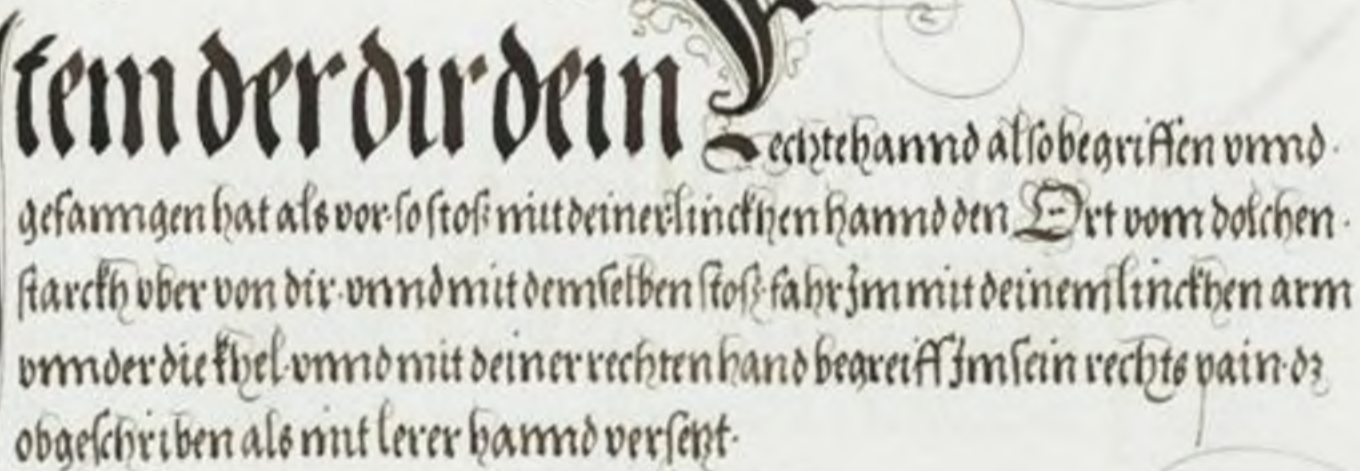 tem der dir dein
Rechte hannd also begriffen vnnd·
gefanngen hat als vor· so stoß mit deiner linckhen hannd den Ort vom dolchen·
starckh vber von dir· vnnd mit demselben stoß· fahr Jm mit deinem linckhen arm
vnnder die khel· vnnd mit deiner rechten hand begreiff Jm sein rechts pain· dz
obgeschriben als mit lerer hannd versetzt·